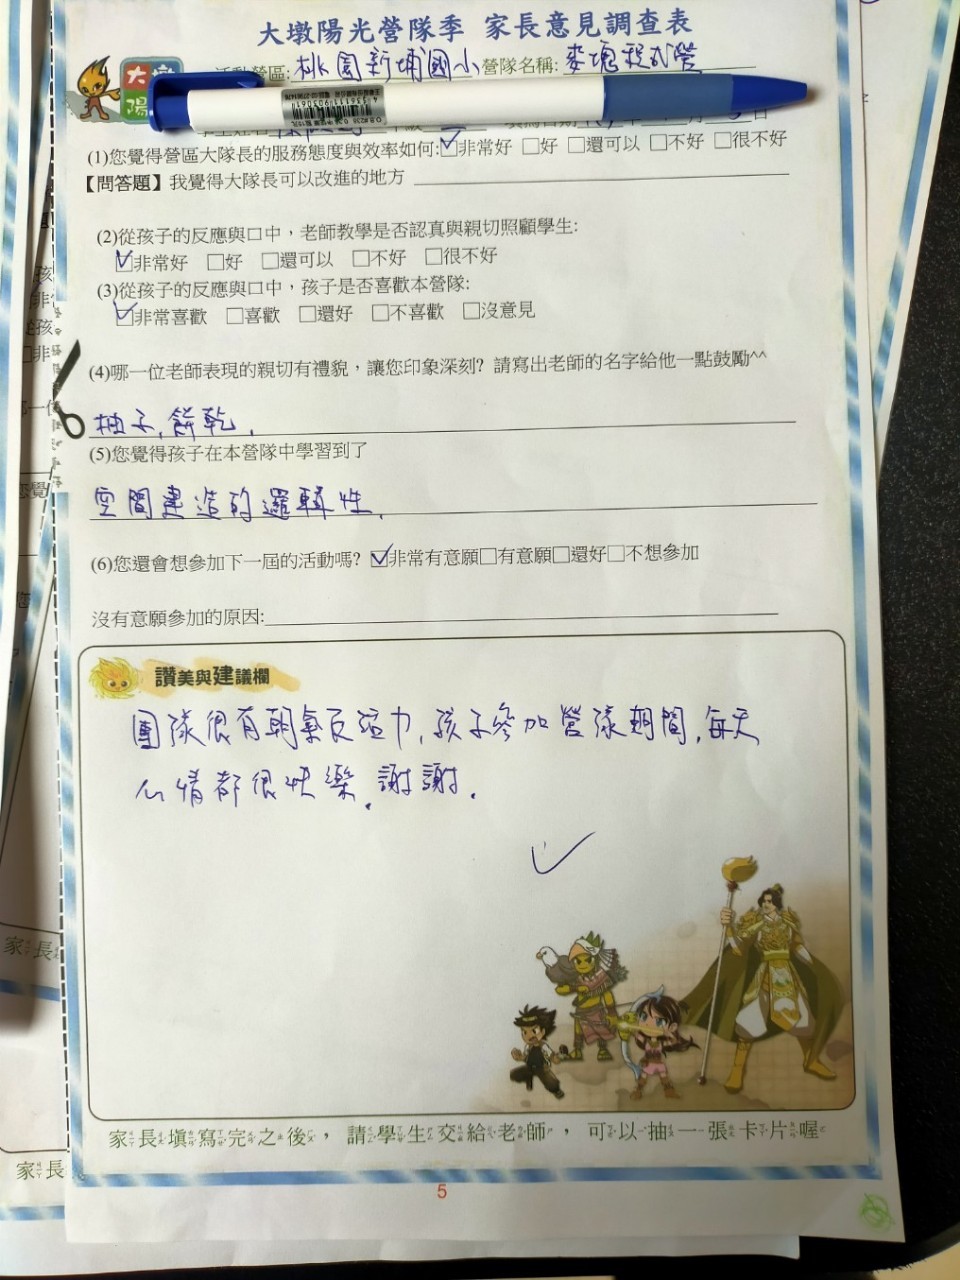 大墩陽光營隊季 家長意見調查表
大墩
陽
活動營區:桃園新埔國小 營隊名稱:麥塊程式營
(1)您覺得營區大隊長的服務態度與效率如何:☑非常好 □好 □還可以 □不好 □很不好
【問答題】我覺得大隊長可以改進的地方
(2)從孩子的反應與口中,老師教學是否認真與親切照顧學生:
☑非常好 □好 □還可以 □不好 □很不好
(3)從孩子的反應與口中,孩子是否喜歡本營隊:
☑非常喜歡 □喜歡 □還好 □不喜歡 □沒意見
(4)哪一位老師表現的親切有禮貌,讓您印象深刻? 請寫出老師的名字給他一點鼓勵^^
柚子,餅乾.
(5)您覺得孩子在本營隊中學習到了
空間建造的邏輯性.
(6)您還會想參加下一屆的活動嗎? ☑非常有意願□有意願□還好□不想參加
沒有意願參加的原因:
讚美與建議欄
團隊很有朝氣有活力,孩子參加營隊期間,每天
心情都很快樂.謝謝.
家長填寫完之後,請學生交給老師,可以抽一張卡片喔
5